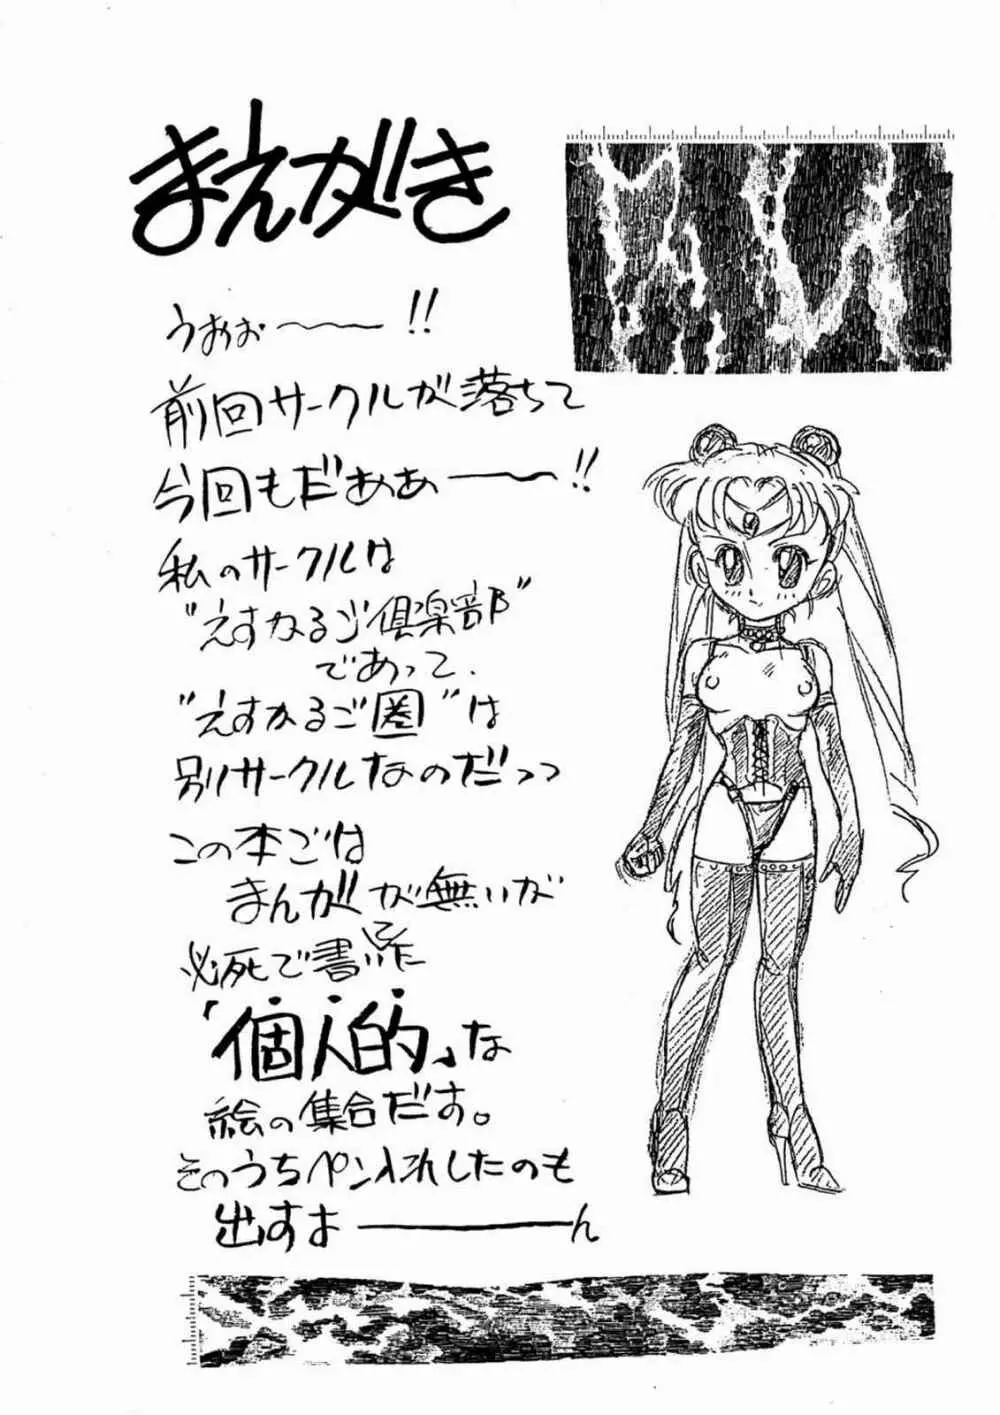 まえがき
うおぉ〜〜!!
前回サークルが落ちて
今回もだぁぁ〜〜!!
私のサークルは
"えすかるご倶楽部"
であって、
"えすかるご圏"は
別サークルなのだっっ
この本ごは
まんがが無いが
必死で書いた
「個人的」な
絵の集合だす。
そのうちペン入れしたのも
出すよ———ん